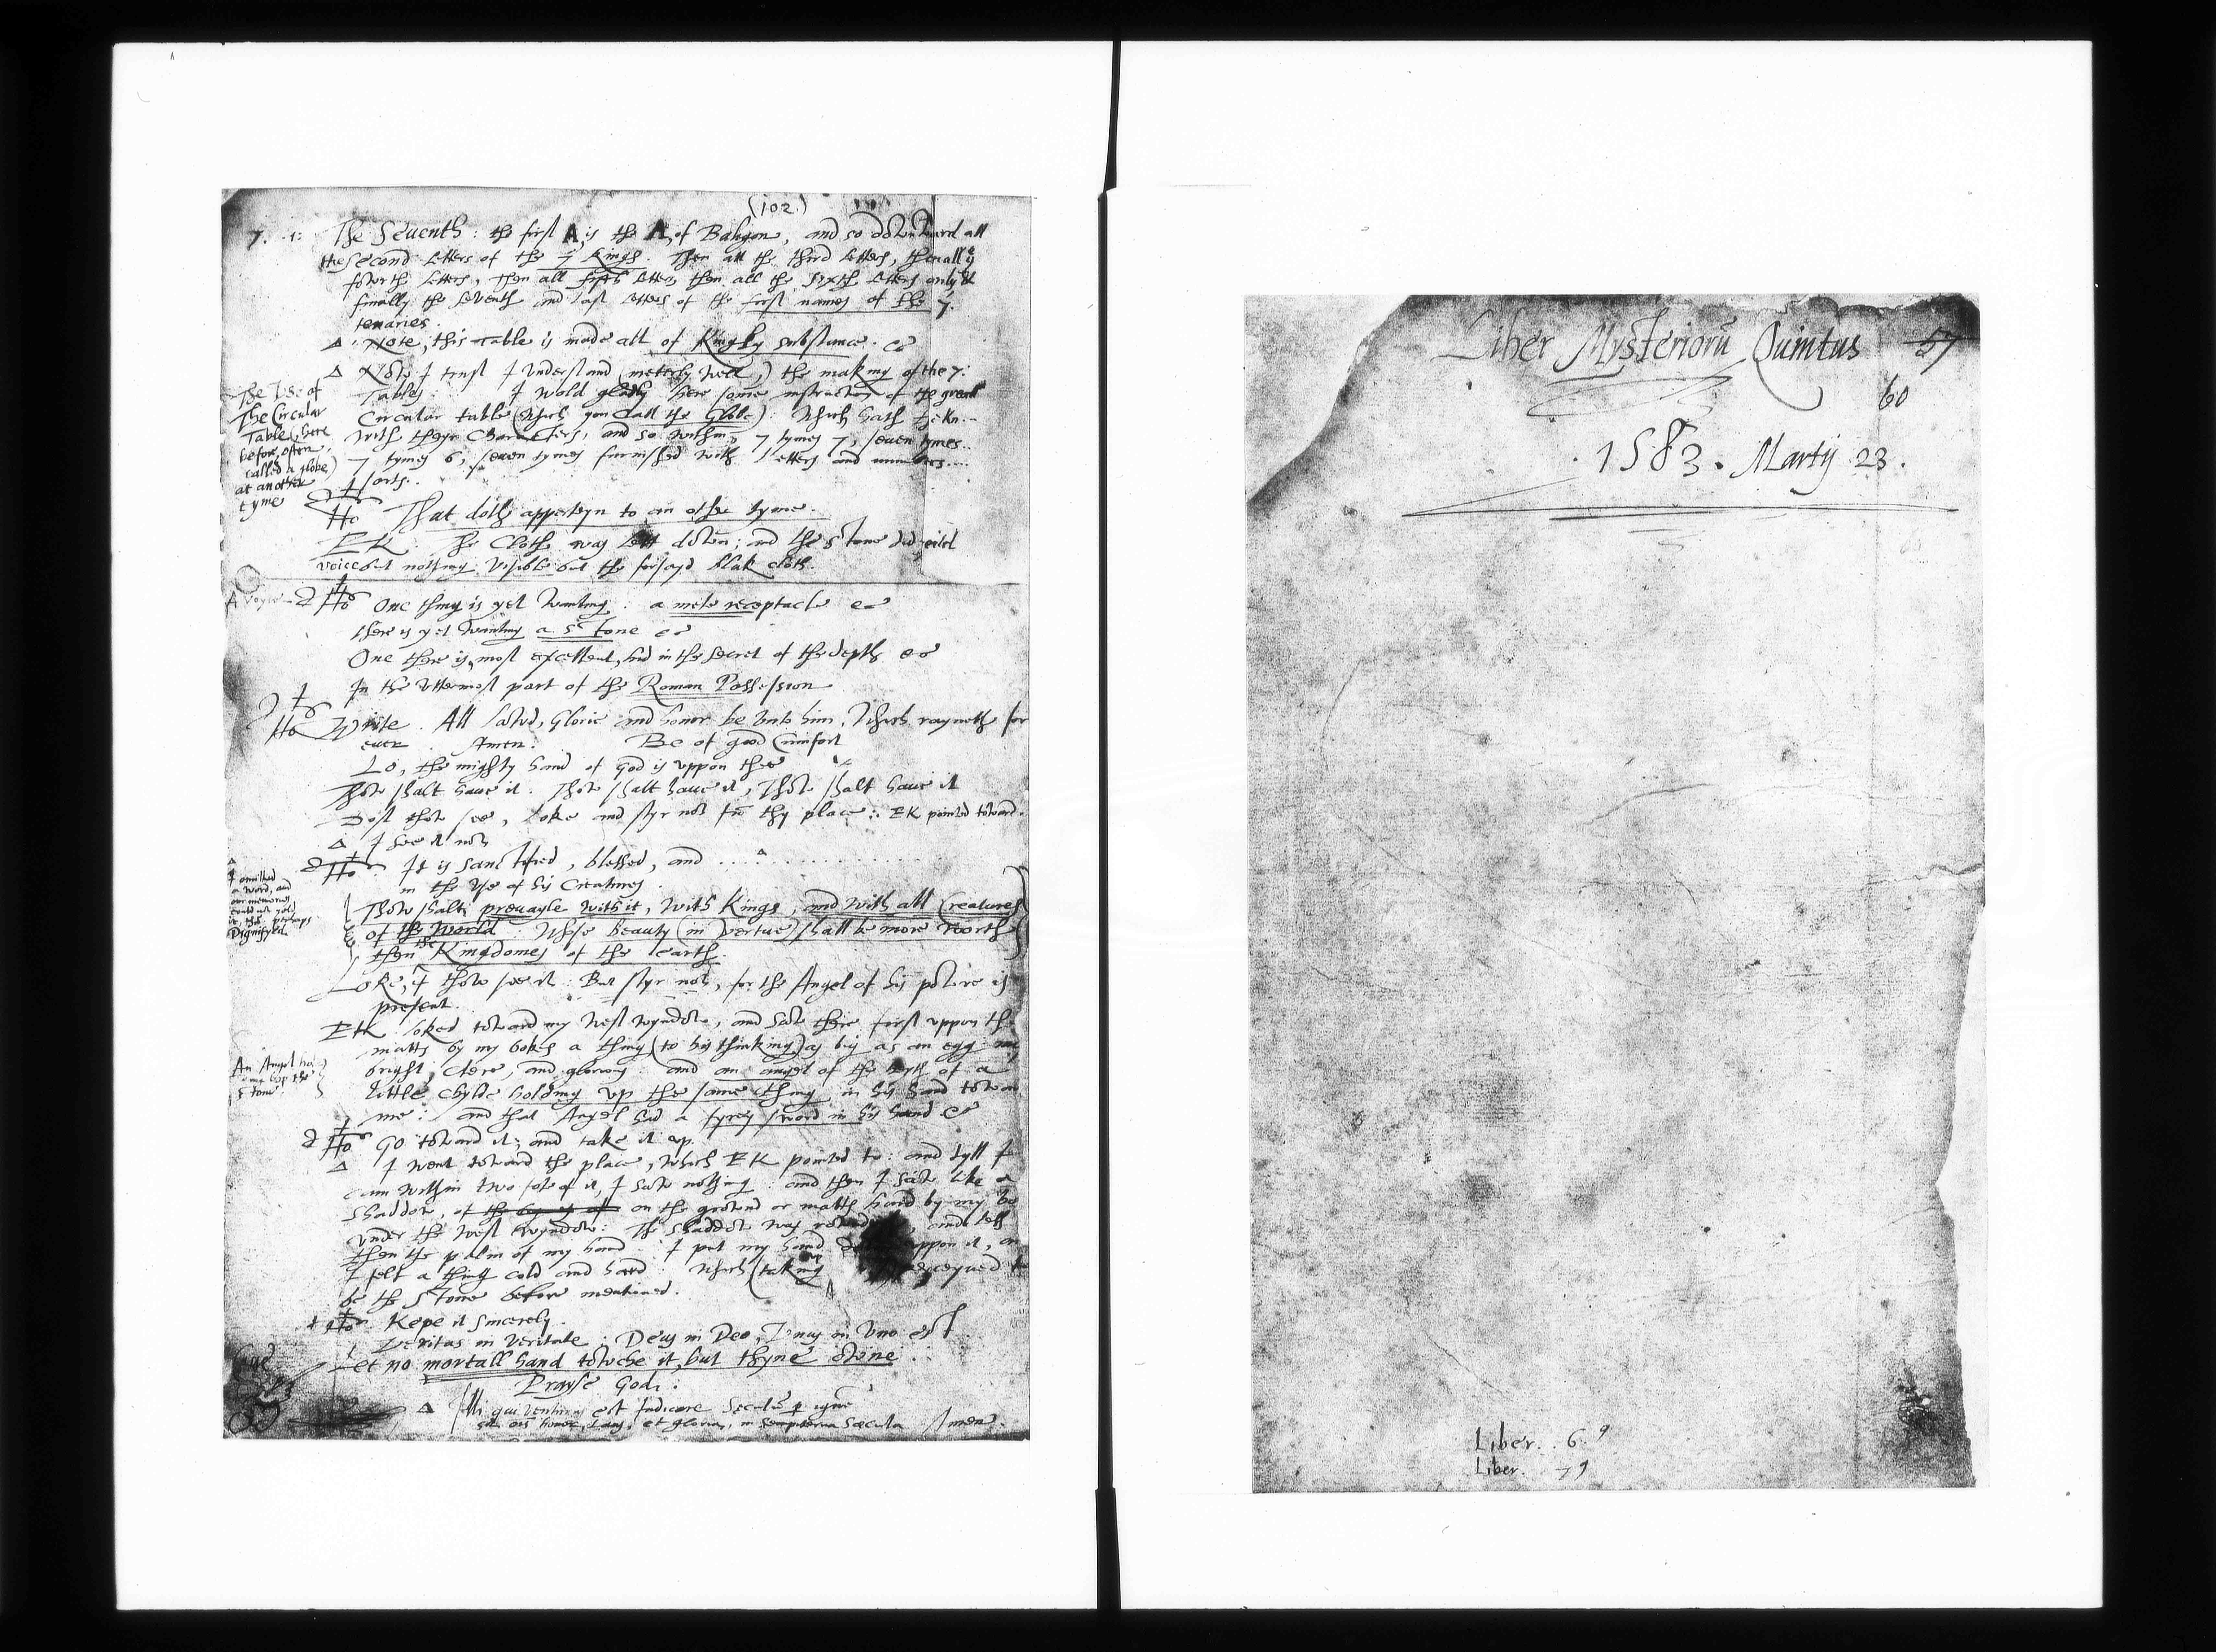 (102.)
7. The Seventh: the first A, is the A, of Baligon, and so downward all
the second letters of the 7 Kings. Then all the third letters, then all
fowrth letters, Then all fifth letters, then all the sixth letters only &
finally the seventh and last letters of the first names of the 7.
tenaries.
Δ Note, this Table is made all of Kingly substance. &c
Δ Now I trust I understand (meterly well) the making of the 7:
Tables: I wold gladly here some instruction of the great
Circular table (which you call the Globe): which hath
with theyr Characters, and so within, 7 tymes 7, seven tymes
7 tymes 6, seven tymes furnished with letters and numbers
sorts.
The Use of
The Circular
Table, (here
before, often,
called a globe)
at another
tyme
That doth apperteyn to an other tyme.
EK The Cloth was left down; and the stone did yeild
voice but nothing visible but the forsayd blak cloth.
A voyce
One thing is yet wanting: a mete receptacle &c
There is yet wanting a stone &c
One there is, most excellent, hid in the secret of the depth &c
In the uttermost part of the Roman Possession
Write. All lawd, Glorie and honor be unto him, which rayneth for
ever. Amen. Be of good Cumfort
Lo, the mighty hand of god is uppon thee
Thow shalt have it. Thow shalt have it, Thow shalt have it
Dost thow see, Loke and styr not fro thy place: EK pointed toward.
Δ I see it not
It is sanctified, blessed, and
in the use of his Creatures.
I omitted
a word, and
our memories
could not yeld
it, this perhaps
Dignifyed.
Thow shalt prevayle with it, with Kings, and with all Creatures
of the World: Whose beauty (in vertue) shall be more worth
then the Kingdomes of the earth.
Loke, if thow see it: But styr not, for the Angel of his powre is
present.
EK loked toward my west wyndow, and saw there first uppon the
matts by my bokes a thing, (to his thinking) as big as an egg:
bright, clere, and glorious: and an angel of the heyth of a
little chylde holding up the same thing in his hand toward
me: and that Angel had a fyrey sword in his hand &c
An Angel
up the
stone.
Go toward it; and take it up.
Δ I went toward the place, which EK pointed to: and tyll I
cam within two fote of it, I saw nothing: and then I saw like a
shaddow, on the grownd or matts hard by my
under the west wyndow: The shaddow was
then the palm of my hand. I put my hand uppon it,
I felt a thing cold and hard: which (taking up
be the stone before mentioned.
Kepe it sincerely.
Veritas in veritate: Deus in Deo, Unus in Uno est
Let no mortall hand towche it, but thyne owne
Prayse God.
Δ Illi qui venturus est Judicare Seculum per ignem
sit ois honor, Laus, et gloria, in sempiterna sæcula Amen.
Liber Mysteriorū Quintus 57
60
1583. Martij 23.
Liber. 6.9
Liber. 79